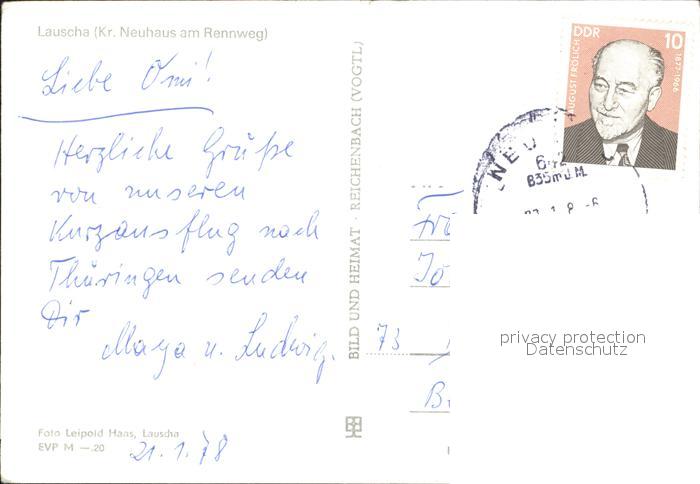 Lauscha (Kr. Neuhaus am Rennweg)
Liebe Omi!
Herzliche Grüße
von unseren
Kurzausflug nach
Thüringen senden
Dir
Maya u. Ludwig.
Foto Leipold Haas, Lauscha
EVP M —.20
21.1.78
BILD UND HEIMAT · REICHENBACH (VOGTL)
DDR 10
AUGUST FRÖLICH
1877-1966
NEU
642
835m ü.M.
73
privacy protection
Datenschutz